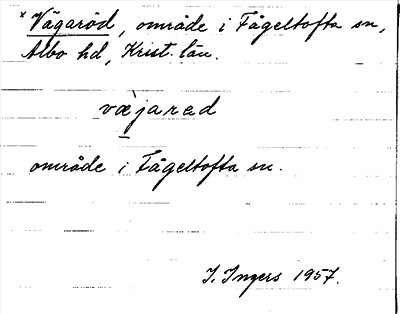 * Vägaröd, område i Fågeltofta sn,
Albo hd, Krist. län.
væ̀jarad
område i Fågeltofta sn.
I. Ingers 1957.